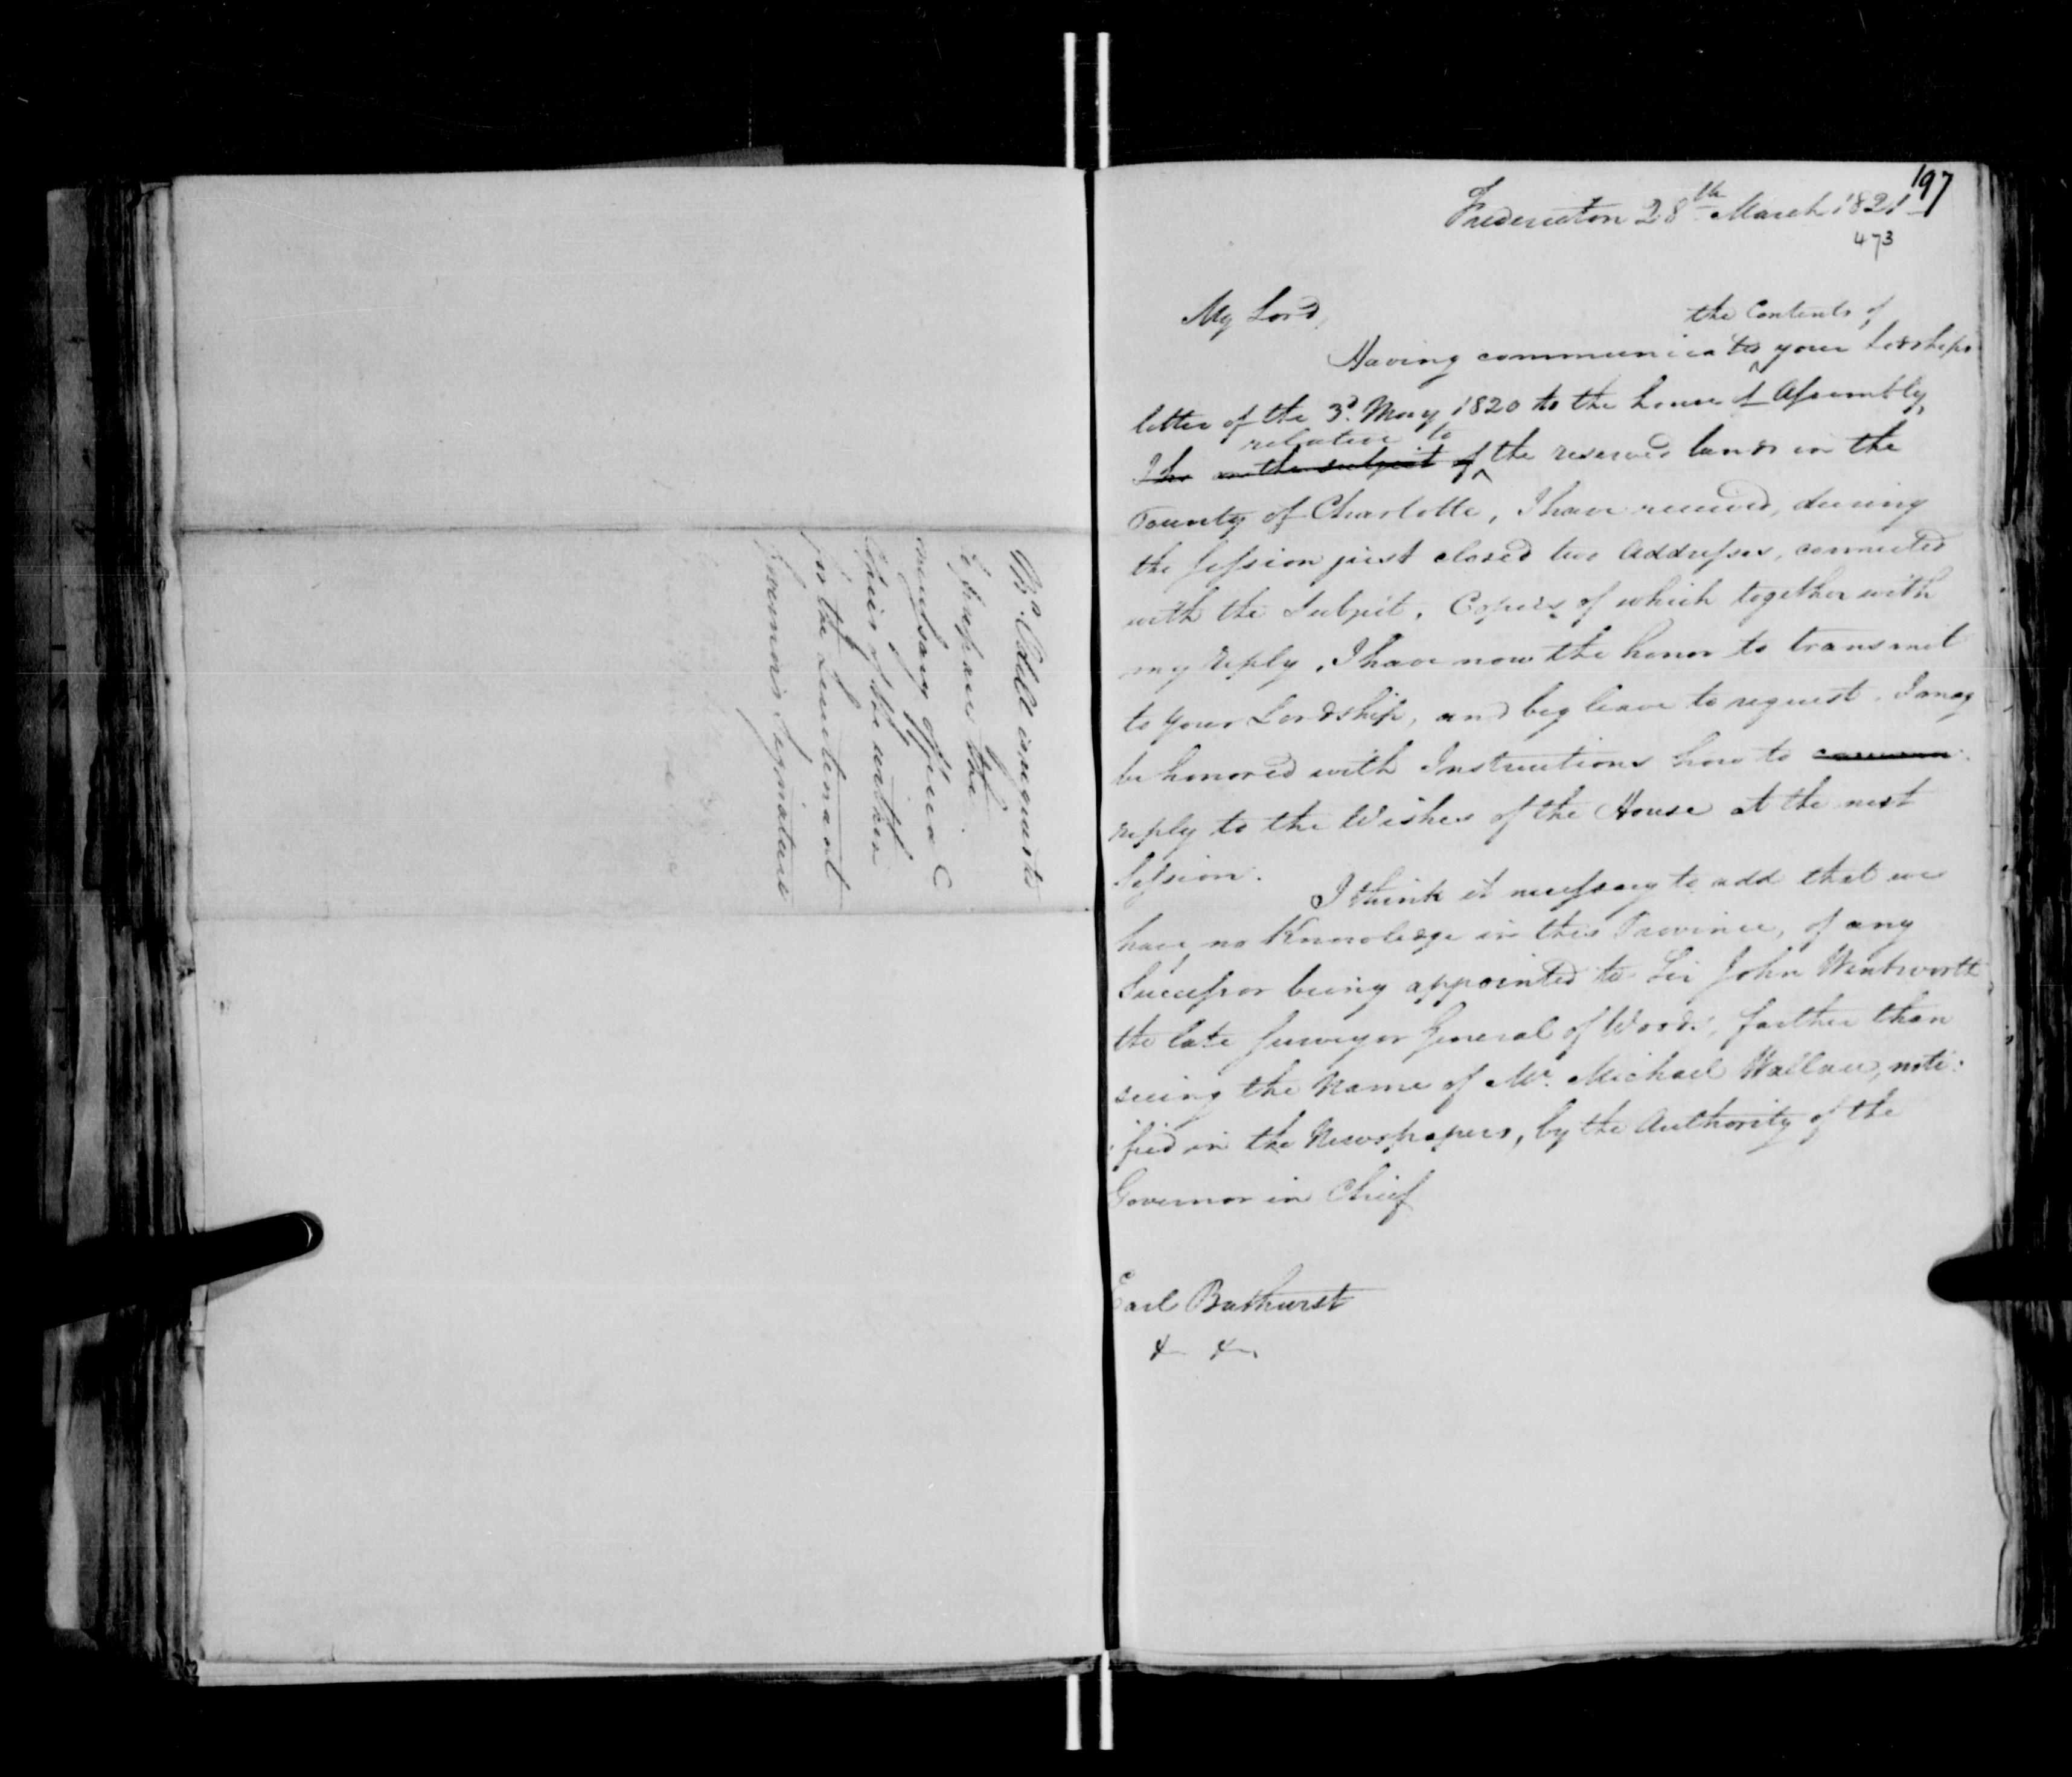 Mr. Odell is requested
to prepare the
necessary office
Copies of the within
for the Lieutenant
Governor's signature
197
Fredericton 28th March 1821
473
My Lord,
the Contents of
Having communicated your Lordships
letter of the 3d. May 1820 to the house of Assembly,
relative to
on the subject of the reserved lands in the
County of Charlotte, I have received, during
the Session just closed two Addresses, connected
with the Subject, Copies of which together with
my reply, I have now the honor to transmit
to your Lordship, and beg leave to request, I may
be honored with Instructions how to
reply to the Wishes of the House at the next
Session.
I think it necessary to add that we
have no Knowledge in this Province, of any
Successor being appointed to Sir John Wentworth
the late Surveyor General of Woods, farther than
seeing the Name of Mr. Michael Wallace, noti:
:fied in the Newspapers, by the Authority of the
Governor in Chief
Earl Bathurst
& &